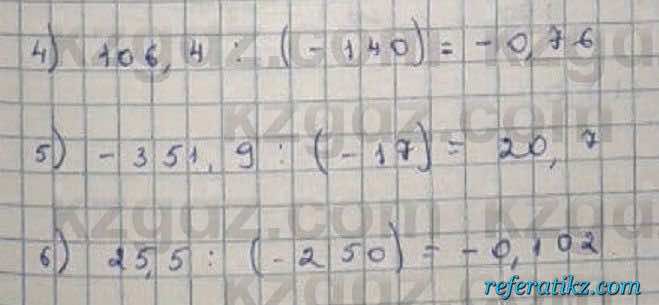 4) 106,4 : (-140) = -0,76
kzgdz.com
5) -351,9 : (-17) = 20,7
kzgdz.com
6) 25,5 : (-250) = -0,102
referatikz.com